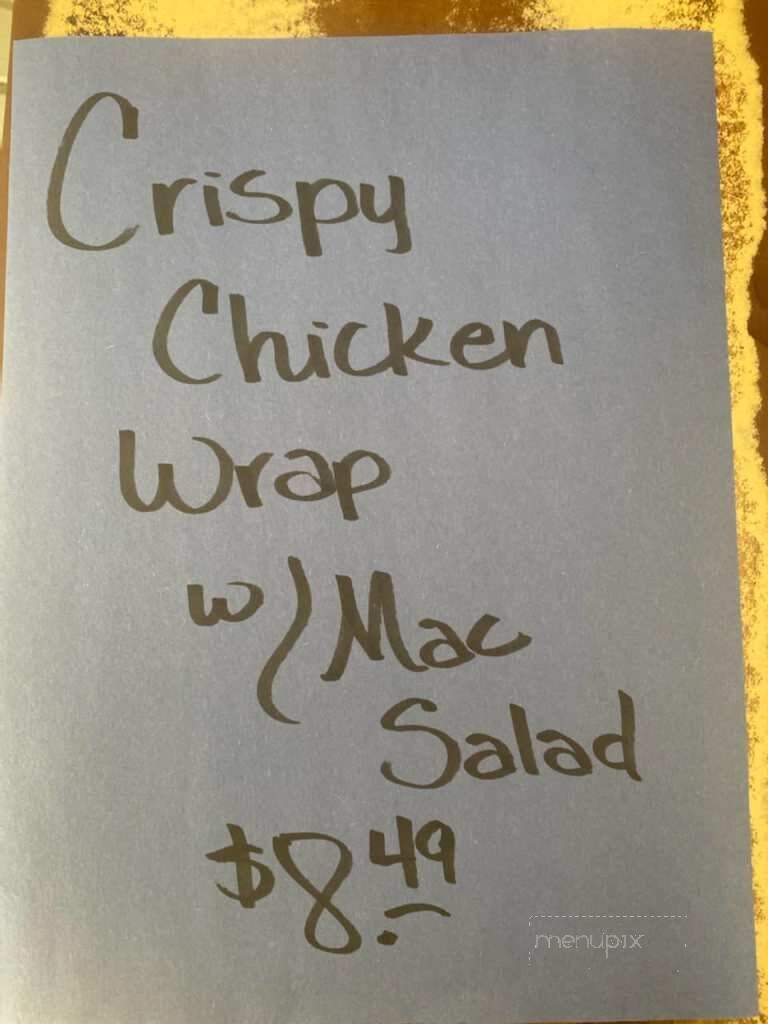 Crispy
Chicken
Wrap
w/Mac
Salad
$8.49
menupix